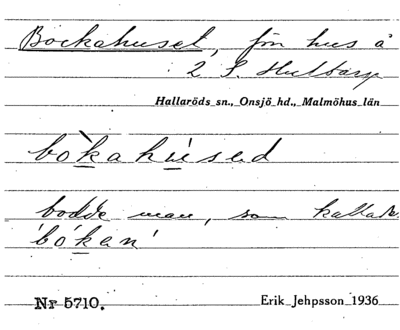 Bockahuset, förr hus å
2 S. Hultarp
Hallaröds sn., Onsjö hd., Malmöhus län
bòkahúsed
bodde man, som kallades
'bóken'
Nr 5710. Erik Jehpsson 1936